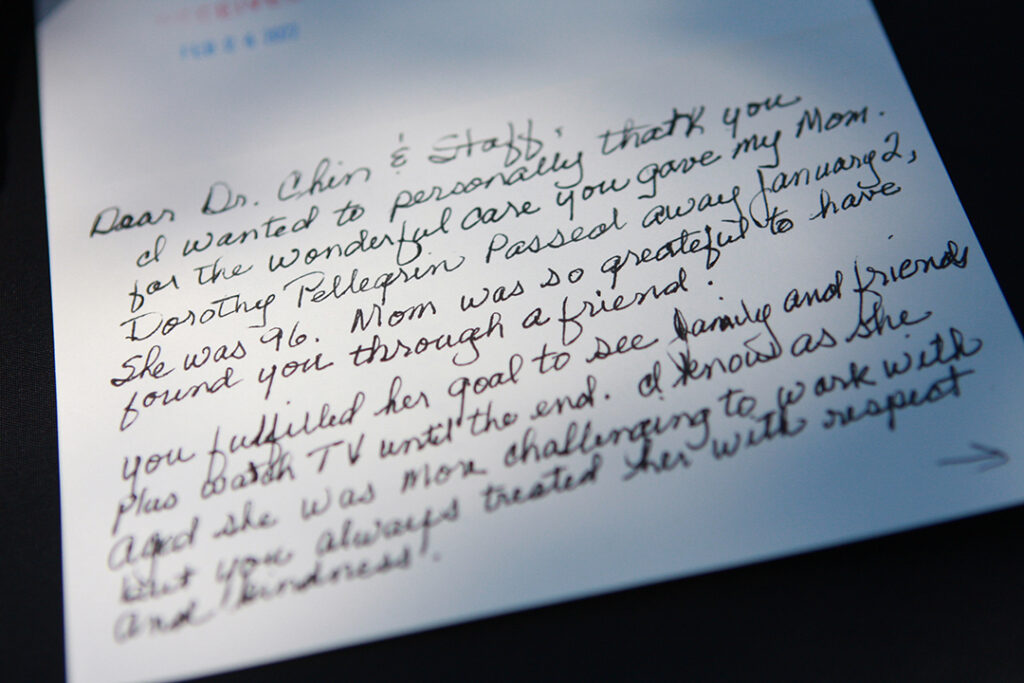 FEB
Dear Dr. Chin & Staff,
I wanted to personally thank you
for the wonderful care you gave my Mom.
Dorothy Pellegrin Passed away January 2,
She was 96. Mom was so greateful to have
found you through a friend.
you fulfilled her goal to see family and friends
Plus watch TV until the end. I know as she
aged she was more challenging to work with
but you always treated her with respect
and kindness.
→